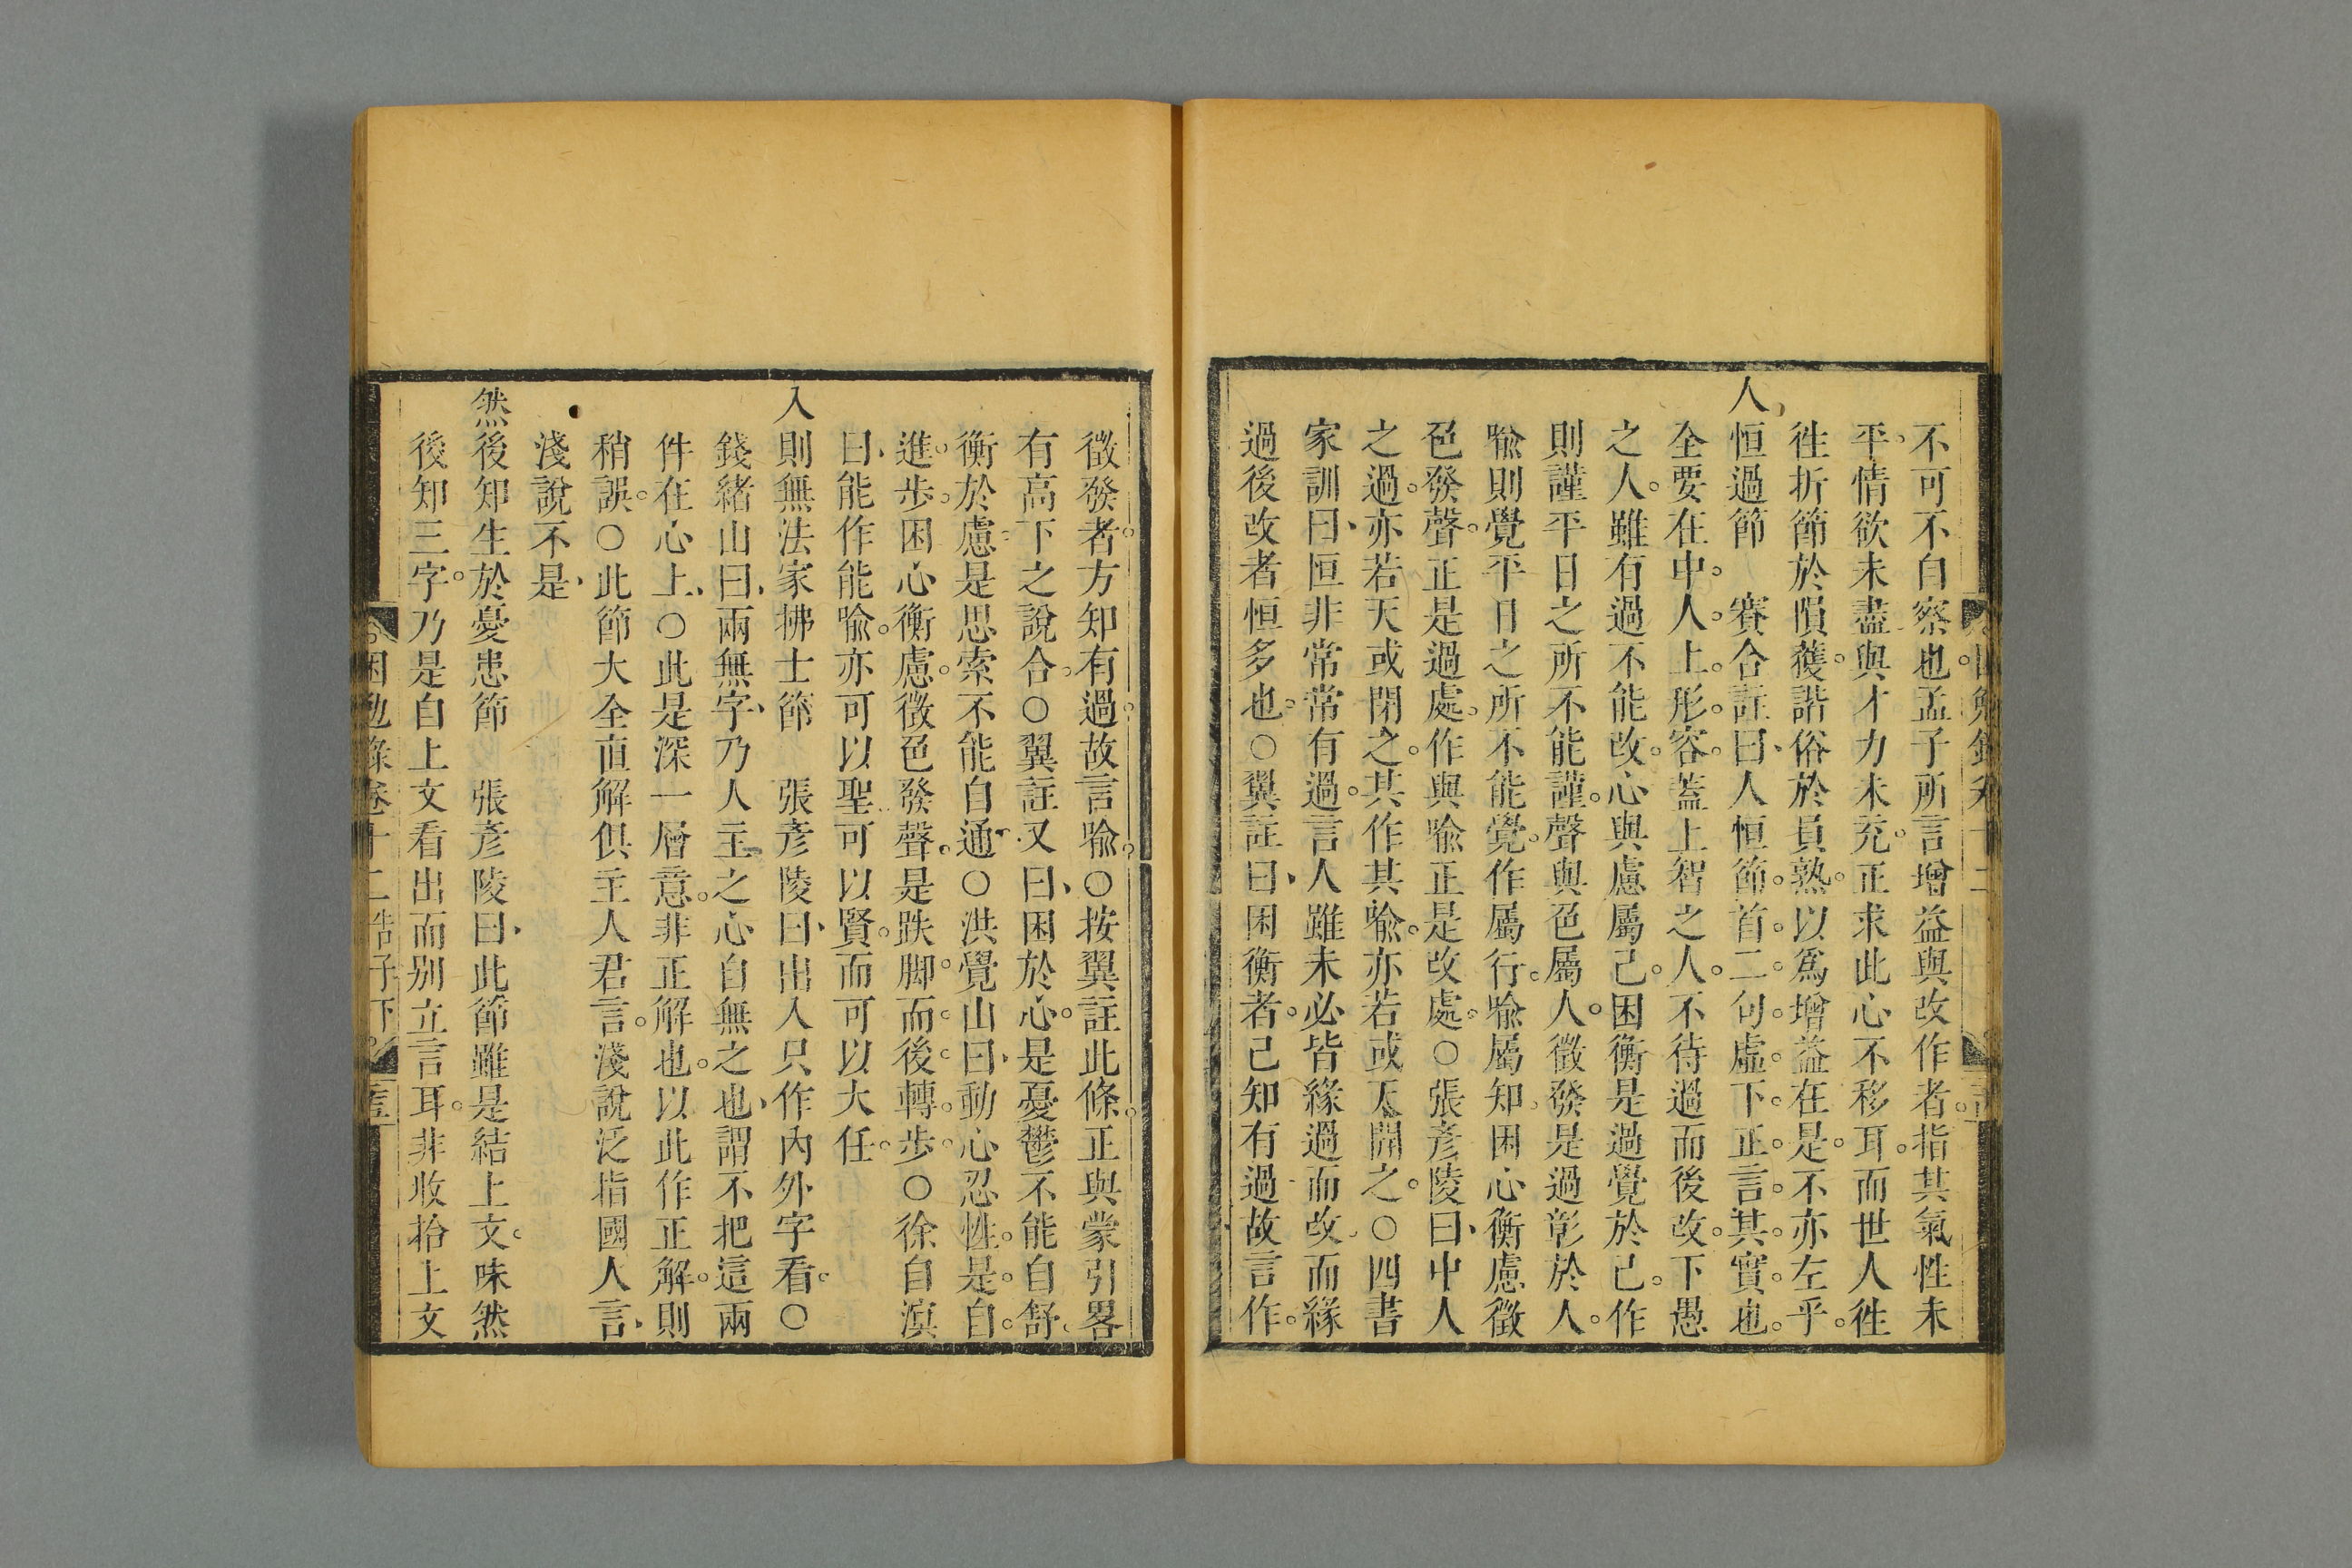 不可不自察也。孟子所言增益與改作者。指其氣性未
平。情欲未盡與才力未充。正求此心不移耳。而世人徃
徃折節於隕穫。諧俗於員熟。以爲增益在是。不亦左乎。
人恒過節　賽合註曰、人恒節。首。二。句。虛。下。正。言。其。實。也。
全要在中。人。上。形。容。蓋上智之人。不待過而後改。下愚
之人。雖有過不能改。心與慮屬己。困衡是過覺於己。作
則謹平日之所不能謹。聲與色屬人。徵發是過彰於人。
喩則覺平日之所不能覺。作屬行。喩屬知。困心衡慮徵
色發聲。正是過處。作與喩正是改處。○張彥陵曰、中人
之過。亦若天或閉之。其作其喩。亦若或天開之。○四書
家訓曰、恒非常常有過。言人雖未必皆緣過而改、而緣
過後改者恒多也。○翼註曰、困衡者。己知有過故言作。
徵發者。方知有過。故言喩。○按翼註此條。正與蒙引畧
有高下之說合。○翼註又曰、困於心。是憂鬱不能自舒、
衡於慮。是思索不能自通。○洪覺山曰、動心忍性。是。自。
進。步。困心衡慮。徵色發聲。是跌脚。而。後。轉。步。○徐自溟
曰、能作能喩。亦可以聖可以賢。而可以大任。
入則無法家拂士節　張彥陵曰、出入只作內外字看。○
錢緒山曰、兩無字、乃人主之心自無之也、謂不把這兩
件在心上、○此是深一層意。非正解也。以此作正解。則
稍誤。○此節大全直解俱主人君言。淺說泛指國人言、
淺說不是、
然後知生於憂患節　張彥陵曰、此節雖是結上文。味然
後知三字。乃是自上文看出而別立言耳。非收拾上文
困勉錄卷十二　告子下